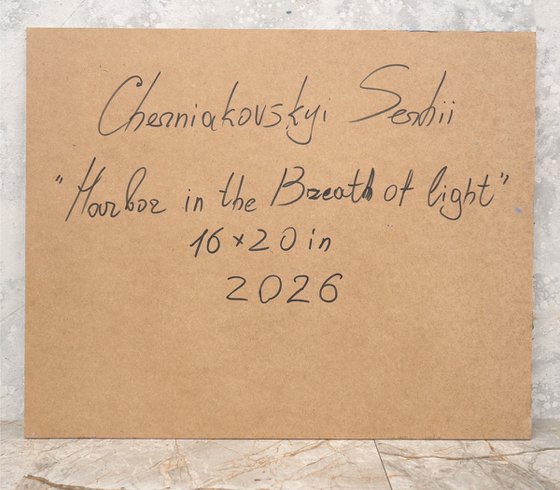 Cherniakovskyi Serhii
"Harbor in the Breath of light"
16×20 in
2026